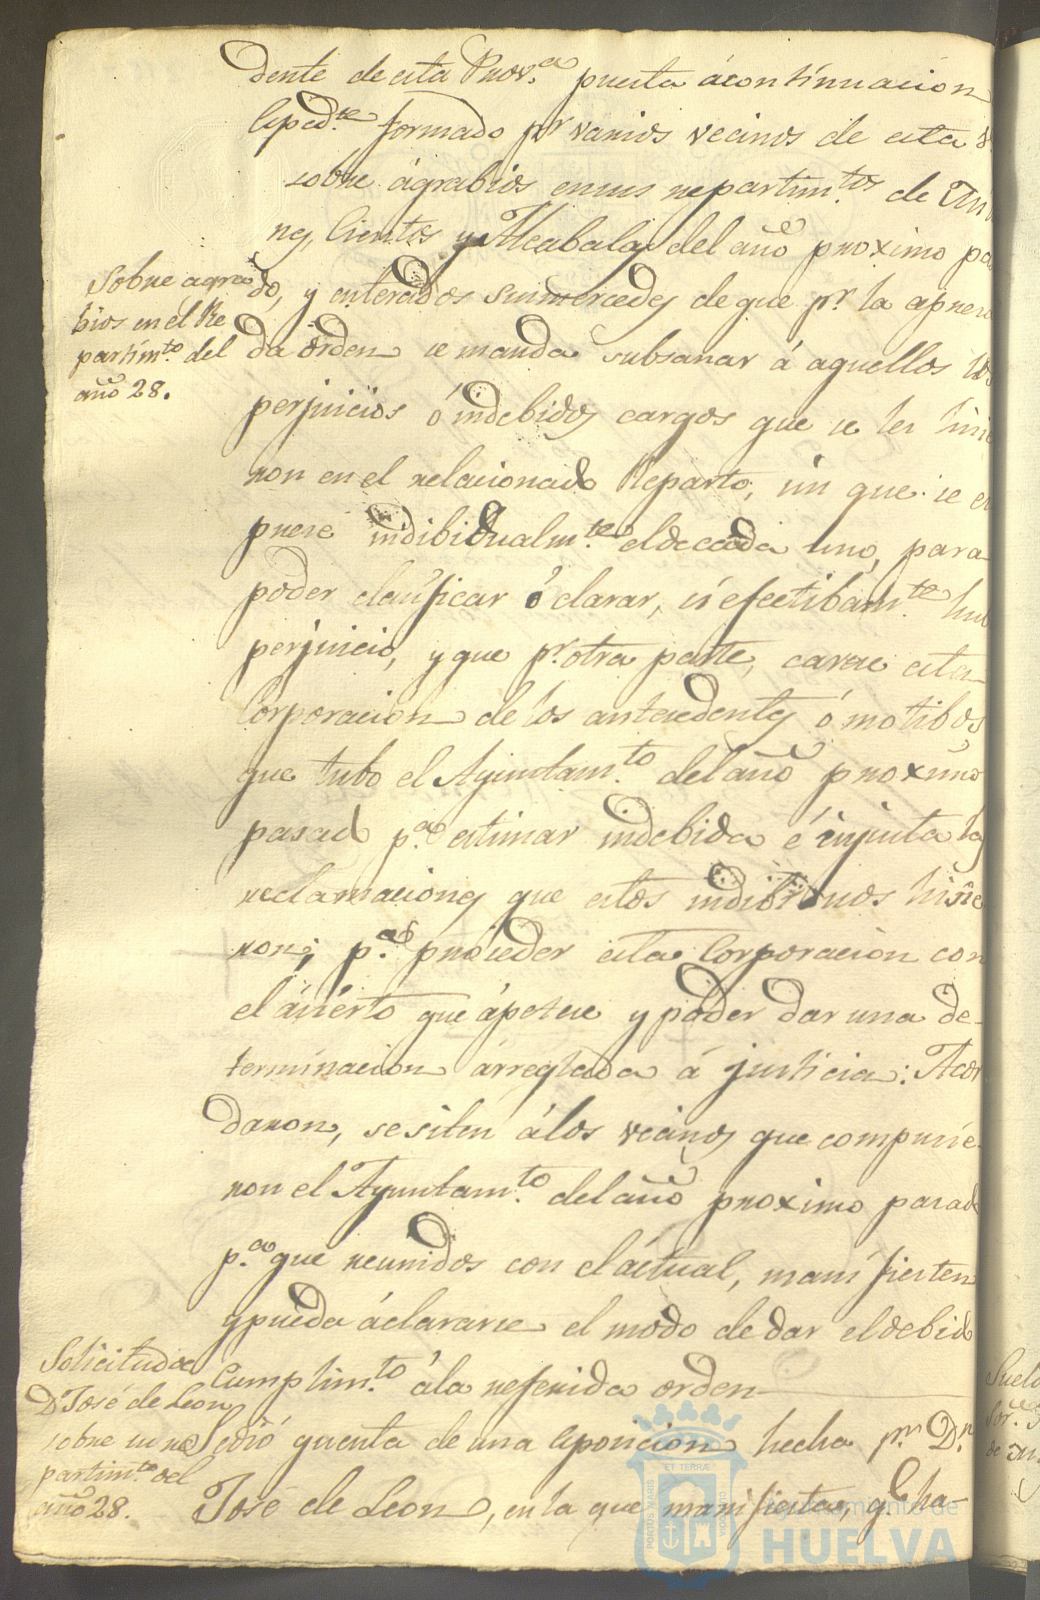 dente de esta Prov.ª puesta ácontinuacion
Cspd.te formado p.r varios vecinos de esta
sobre ágrabios en sus repartim.tos de
nes, Cientos y Alcabalas del año proximo pa
Sobre agra
bios en el Re
partim.to del
año 28.
do, y enterados sus mercedes de que p.r la apresa
da orden se manda subsanar á aquellos los
perjuicios ó indebidos cargos que se les hicie
ron en el relacionado Reparto, sin que se es
prese indibidualm.te el de cada uno, para
poder clasificar ó clarar, si efectibam.te hubo
perjuicio, y que p.r otra parte, carece esta
Corporacion de los antecedentes ó motibos
que tubo el Ayuntam.to del año proximo
pasado p.ª estimar indebida é injusta las
reclamaciones que estos indibiduos hisie
ron; p.ª proceder esta Corporacion con
el ácierto que ápetece y poder dar una de-
terminacion árreglada á justicia: Acor
daron, se siten álos vecinos que compusie
ron el Ayuntam.to del año proximo pasado
p.ª que reunidos con el áctual, manifiesten
y pueda áclararse el modo de dar el debido
Cumplim.to ála referida orden
Solicitud de
D.n José de Leon
sobre su re
partim.to del
año 28.
Se dió quenta de una esposicion hecha p.r D.n
José de Leon, en la que manifiesta, q.e ha-
Ayuntamiento de
HUELVA
PORTUS MARIS
ET TERRÆ
CUSTODIA